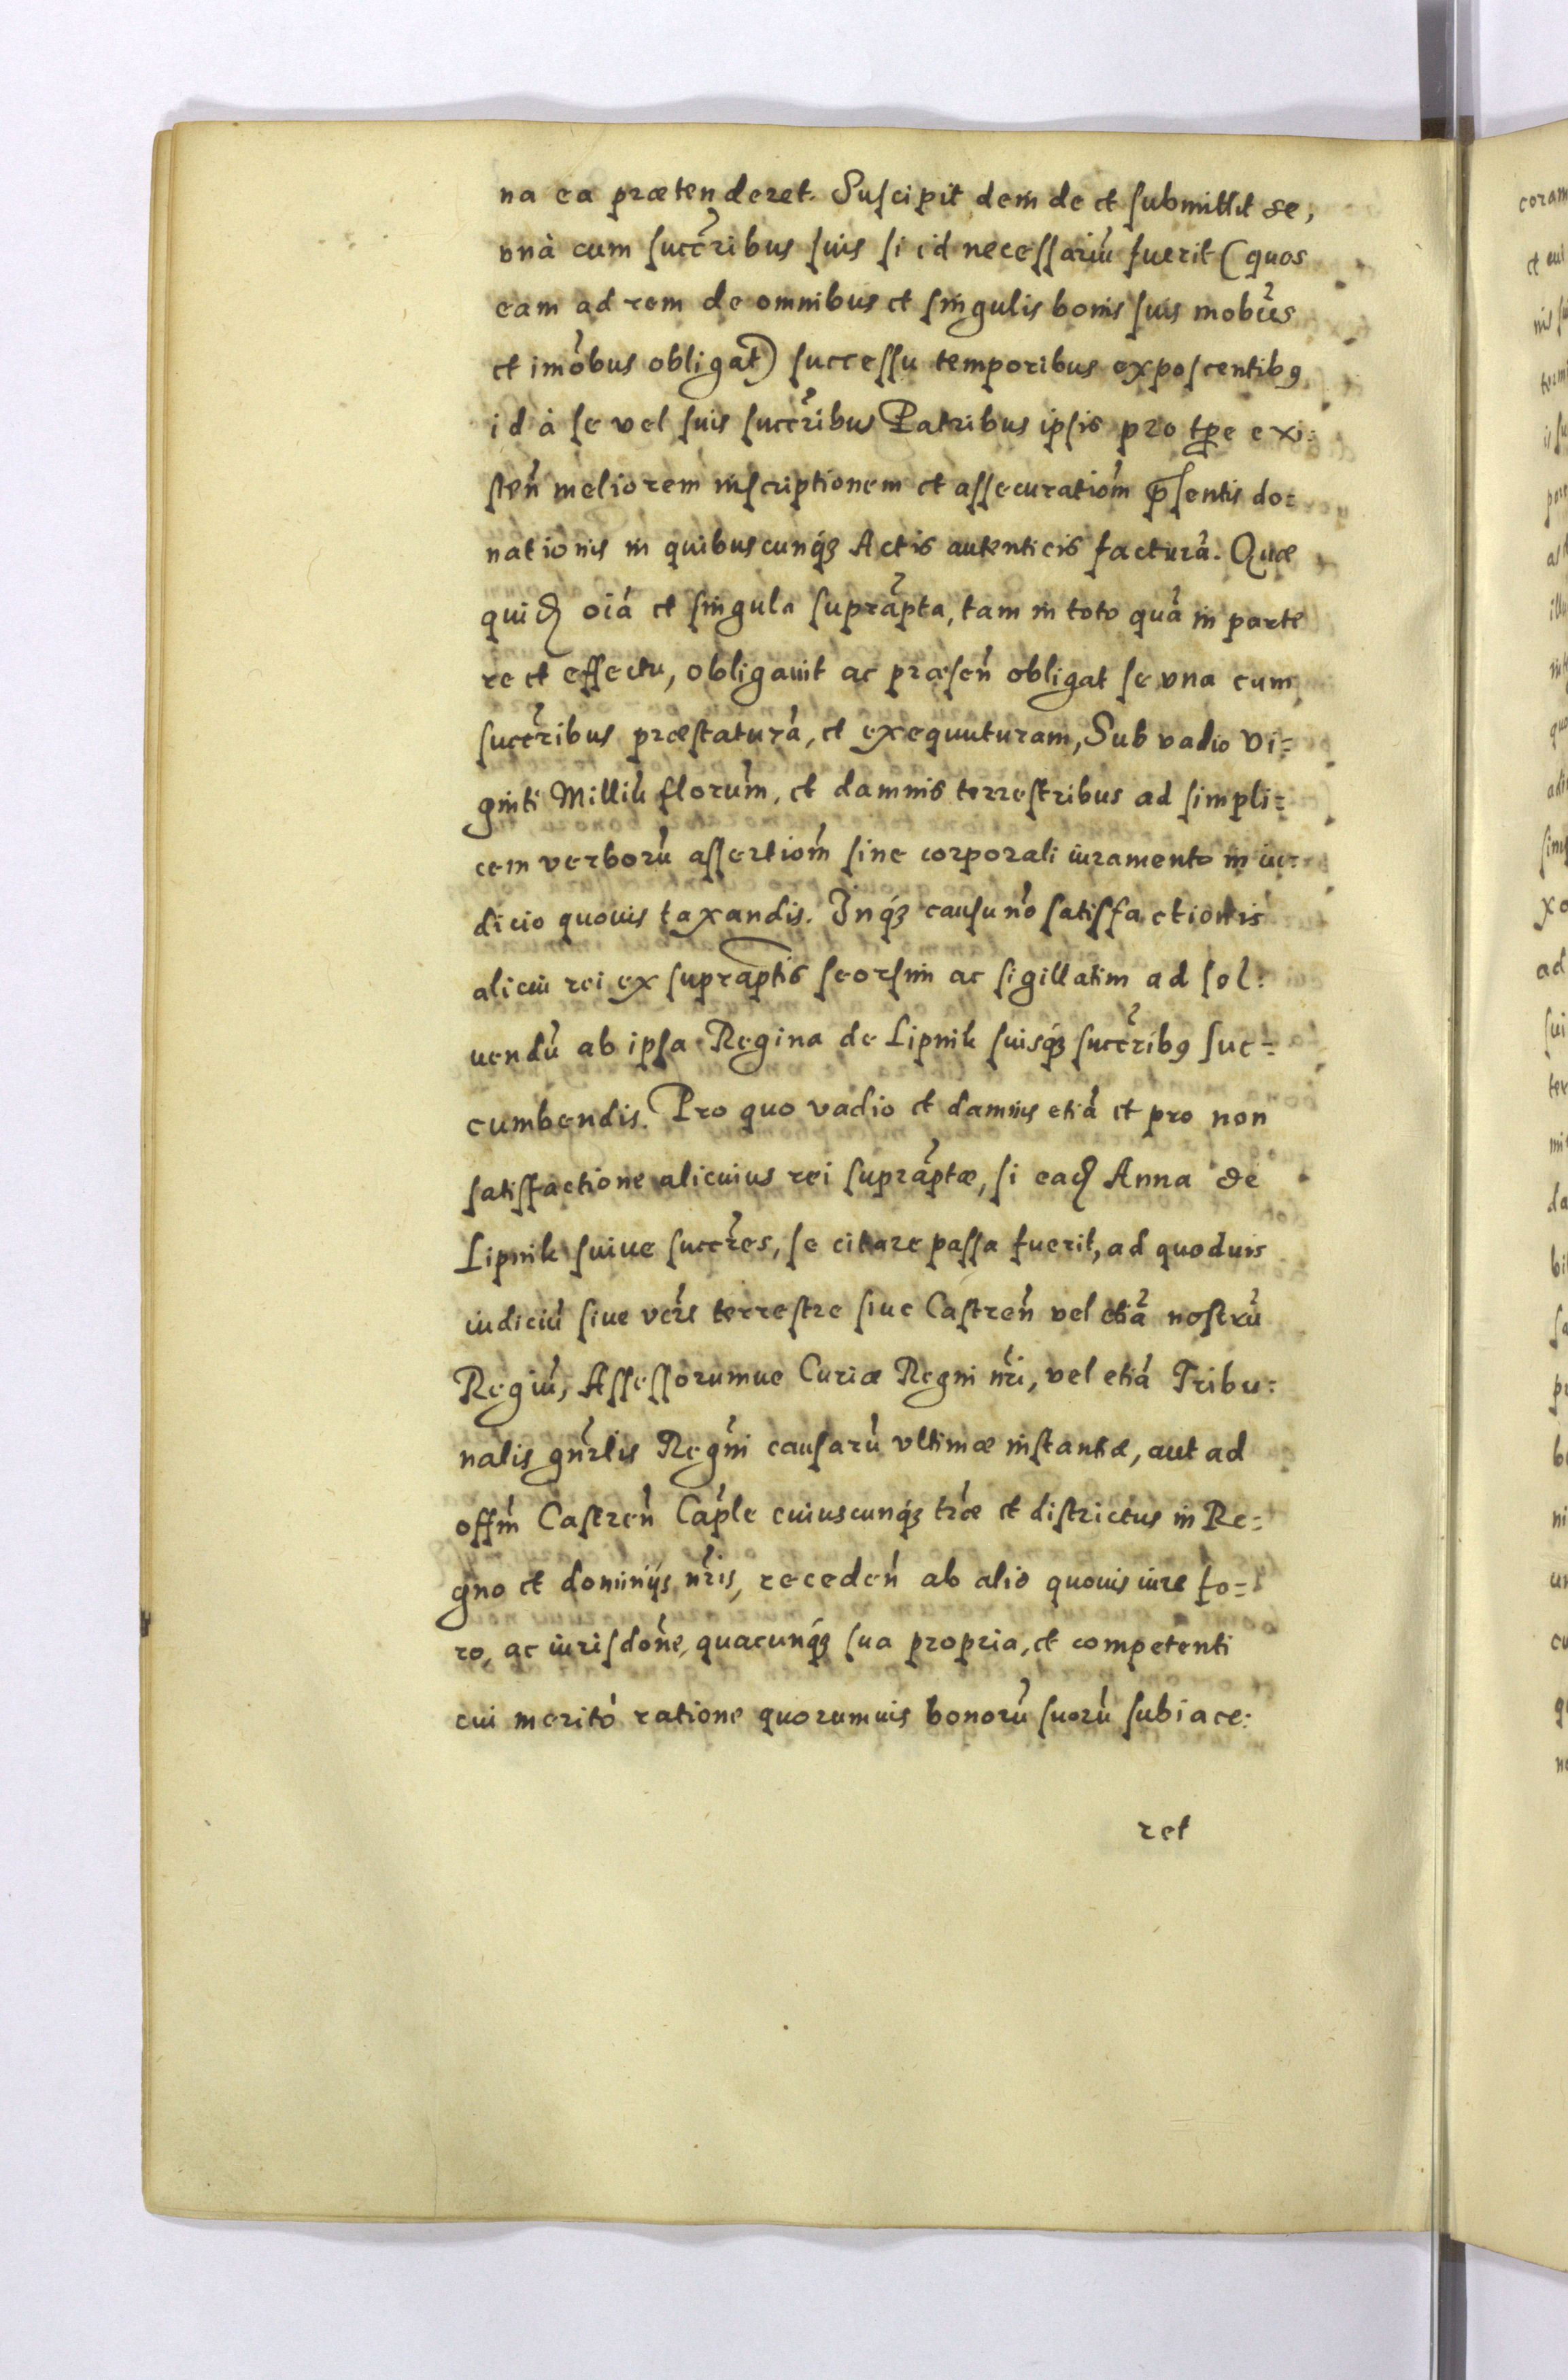 na ea prætenderet. Suscipit deinde et submittit se,
vnà cum succribus suis si id necessariũ fuerit (quos
eam ad rem de omnibus et singulis bonis suis mobus
et imobus obligat) successu temporibus exposcentibꝯ
id à se vel suis succribus Patribus ipsis pro tꝑe exi:
sten̄ meliorem inscriptionem et assecuratiom̄ p̄sentis do=
nationis in quibuscunqꝫ Actis autenticis facturã. Quæ
quid oiã et singula supraptã, tam in toto quã in parte
re et effectu, obligauit ac præsen̄ obligat se vna cum
succribus præstaturã, et exequuturam, Sub vadio vi=
ginti Milliũ florum̄, et damnis terrestribus ad simpli=
cem verborũ assertiom̄ sine corporali iuramento in iu=
dicio quouis taxandis. Inqꝫ causu nõ satisfactionis
alicui rei ex supraptis seorsim ac sigillatim ad sol:
uendũ ab ipsa Regina de Lipnik suisqꝫ succribꝯ suc=
cumbendis. Pro quo vadio et damnis etiã et pro non
satisfactione alicuius rei supraptæ, si ead Anna de
Lipnik suiue succres, se citare passa fuerit, ad quoduis
iudiciũ siue vers̄ terrestre siue Castren̄ vel etiã nostrũ
Regiũ, Assessorumue Curiæ Regni nr̄i, vel etiã Tribu:
nalis gnr̄lis Regn̄i causarũ vltimæ instantiæ, aut ad
offm̄ Castren̄ Caple cuiuscunqꝫ tr̄æ et districtus in Re=
gno et dominijs nr̄is, receden̄ ab alio quouis iure fo=
ro, ac iurisdon̄e, quacunqꝫ sua propria, et competenti
cui meritò ratione quorumuis bonorũ suorũ subiace:
ret